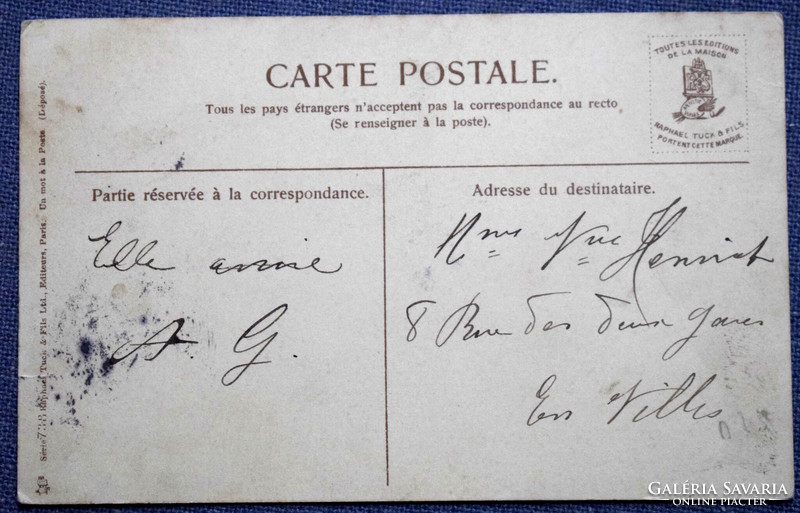 CARTE POSTALE.
Tous les pays étrangers n'acceptent pas la correspondance au recto
(Se renseigner à la poste).
TOUTES LES EDITIONS
DE LA MAISON
RAPHAEL TUCK & FILS
PORTENT CETTE MARQUE.
Raphael Tuck & Fils Ltd., Editeurs, Paris. Un mot à la Poste (Déposé).
Partie réservée à la correspondance.
Elle arrive
A. G.
Adresse du destinataire.
Mme Vve Henriot
8 Rue des deux gares
En Ville
GALÉRIA SAVARIA
ONLINE PIACTÉR